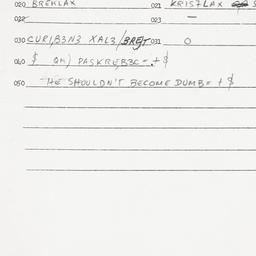 020 BREKLAX 021 KRISTLAX
022 023 —
030 CURI,B3N3 XAL3/BRET 031 0
040 $ OK) PASKREB3C = . + $
050 HE SHOULDN'T BECOME DUMB = + $